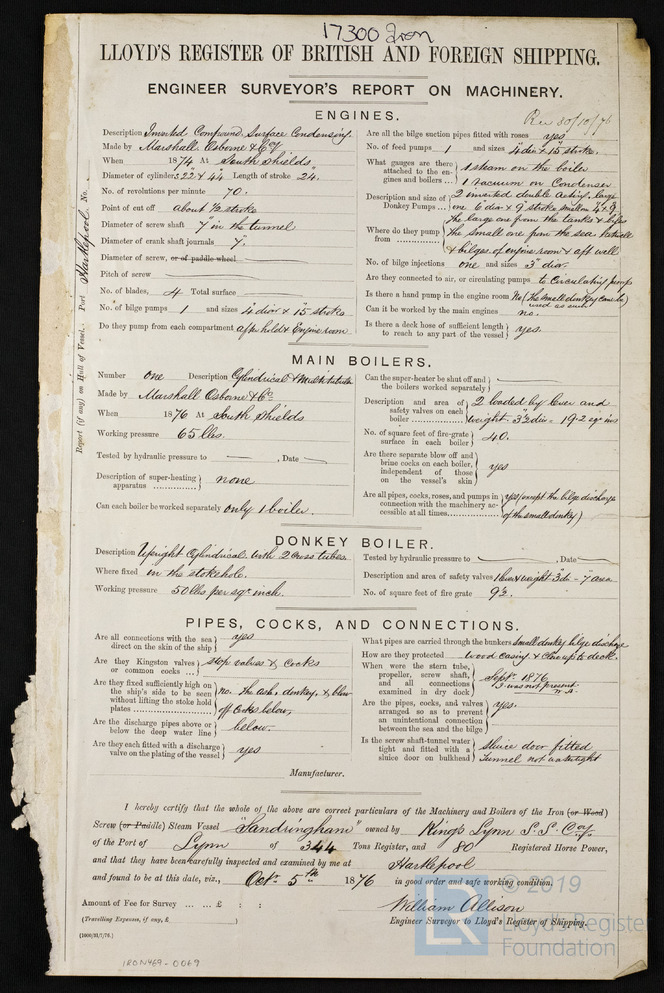 17300 Iron
LLOYD'S REGISTER OF BRITISH AND FOREIGN SHIPPING.
ENGINEER SURVEYOR'S REPORT ON MACHINERY.
Rec 30/10/76
Report (if any) on Hull of Vessel. Port Hartlepool No.
ENGINES.
Description Inverted Compound, Surface Condensing
Made by Marshall Osborne & Coy
When 1874 At South Shields
Diameter of cylinders 22" & 44" Length of stroke 24"
No. of revolutions per minute 70.
Point of cut off about ½ stroke
Diameter of screw shaft 7" in the tunnel
Diameter of crank shaft journals 7"
Diameter of screw, or of paddle wheel
Pitch of screw
No. of blades, 4 Total surface
No. of bilge pumps 1 and sizes 4" dia & 15" stroke
Do they pump from each compartment after hold & Engine room
Are all the bilge suction pipes fitted with roses yes
No. of feed pumps 1 and sizes 4" dia & 15" stroke.
What gauges are there attached to the engines and boilers ... 1 steam on the boiler
1 vacuum on Condenser
Description and size of Donkey Pumps ... 2 inverted double acting, large
one 6" dia & 9" stroke small one 4" & 9"
Where do they pump from ............ the large one from the tanks & bilges
the small one from the sea hotwell
& bilges of engine room & aft well
No. of bilge injections one and sizes 3" dia.
Are they connected to air, or circulating pumps to Circulating pump
Is there a hand pump in the engine room No (the small donkey can be used as such)
Can it be worked by the main engines no.
Is there a deck hose of sufficient length to reach to any part of the vessel yes.
MAIN BOILERS.
Number one Description Cylindrical & multitubular
Made by Marshall Osborne & Co
When 1876 At South Shields
Working pressure 65 lbs.
Tested by hydraulic pressure to , Date
Description of super-heating apparatus ........ none
Can each boiler be worked separately only 1 boiler.
Can the super-heater be shut off and the boilers worked separately
Description and area of safety valves on each boiler ........ 2 loaded by lever and
weight - 3½ dia = 19.2 sq ins
No. of square feet of fire-grate surface in each boiler 40.
Are there separate blow off and brine cocks on each boiler, independent of those on the vessel's skin yes
Are all pipes, cocks, roses, and pumps in connection with the machinery accessible at all times........ yes (except the bilge discharge
of the small donkey)
DONKEY BOILER.
Description Upright Cylindrical with 2 cross tubes
Where fixed in the stokehole.
Working pressure 50 lbs per sqr inch.
Tested by hydraulic pressure to , Date
Description and area of safety valves 1 lever & weight 3" di - 7" area
No. of square feet of fire grate 9½.
PIPES, COCKS, AND CONNECTIONS.
Are all connections with the sea direct on the skin of the ship yes
Are they Kingston valves or common cocks ... stop valves & cocks
Are they fixed sufficiently high on the ship's side to be seen without lifting the stoke hold plates ........ no. the ash, donkey, & blow
off cocks below,
Are the discharge pipes above or below the deep water line below.
Are they each fitted with a discharge valve on the plating of the vessel yes
What pipes are carried through the bunkers small donkey bilge discharge
How are they protected wood casing & close up to deck.
When were the stern tube, propeller, screw shaft, and all connections examined in dry dock Septr 1876
I was not present
W.A.
Are the pipes, cocks, and valves arranged so as to prevent an unintentional connection between the sea and the bilge yes.
Is the screw shaft-tunnel water tight and fitted with a sluice door on bulkhead sluice door fitted
Tunnel not watertight
Manufacturer.
I hereby certify that the whole of the above are correct particulars of the Machinery and Boilers of the Iron (or Wood)
Screw (or Paddle) Steam Vessel "Sandringham" owned by Kings Lynn S.S. Coy.
of the Port of Lynn of 344 Tons Register, and 80 Registered Horse Power,
and that they have been carefully inspected and examined by me at Hartlepool
and found to be at this date, viz., Octr 5th 1876 in good order and safe working condition.
William Allison
Amount of Fee for Survey ... ... £ : :
Engineer Surveyor to Lloyd's Register of Shipping.
(Travelling Expenses, if any, £ )
[1000/21/7/76.]
IRON469-0069
© 2019
LR
Lloyd's Register
Foundation